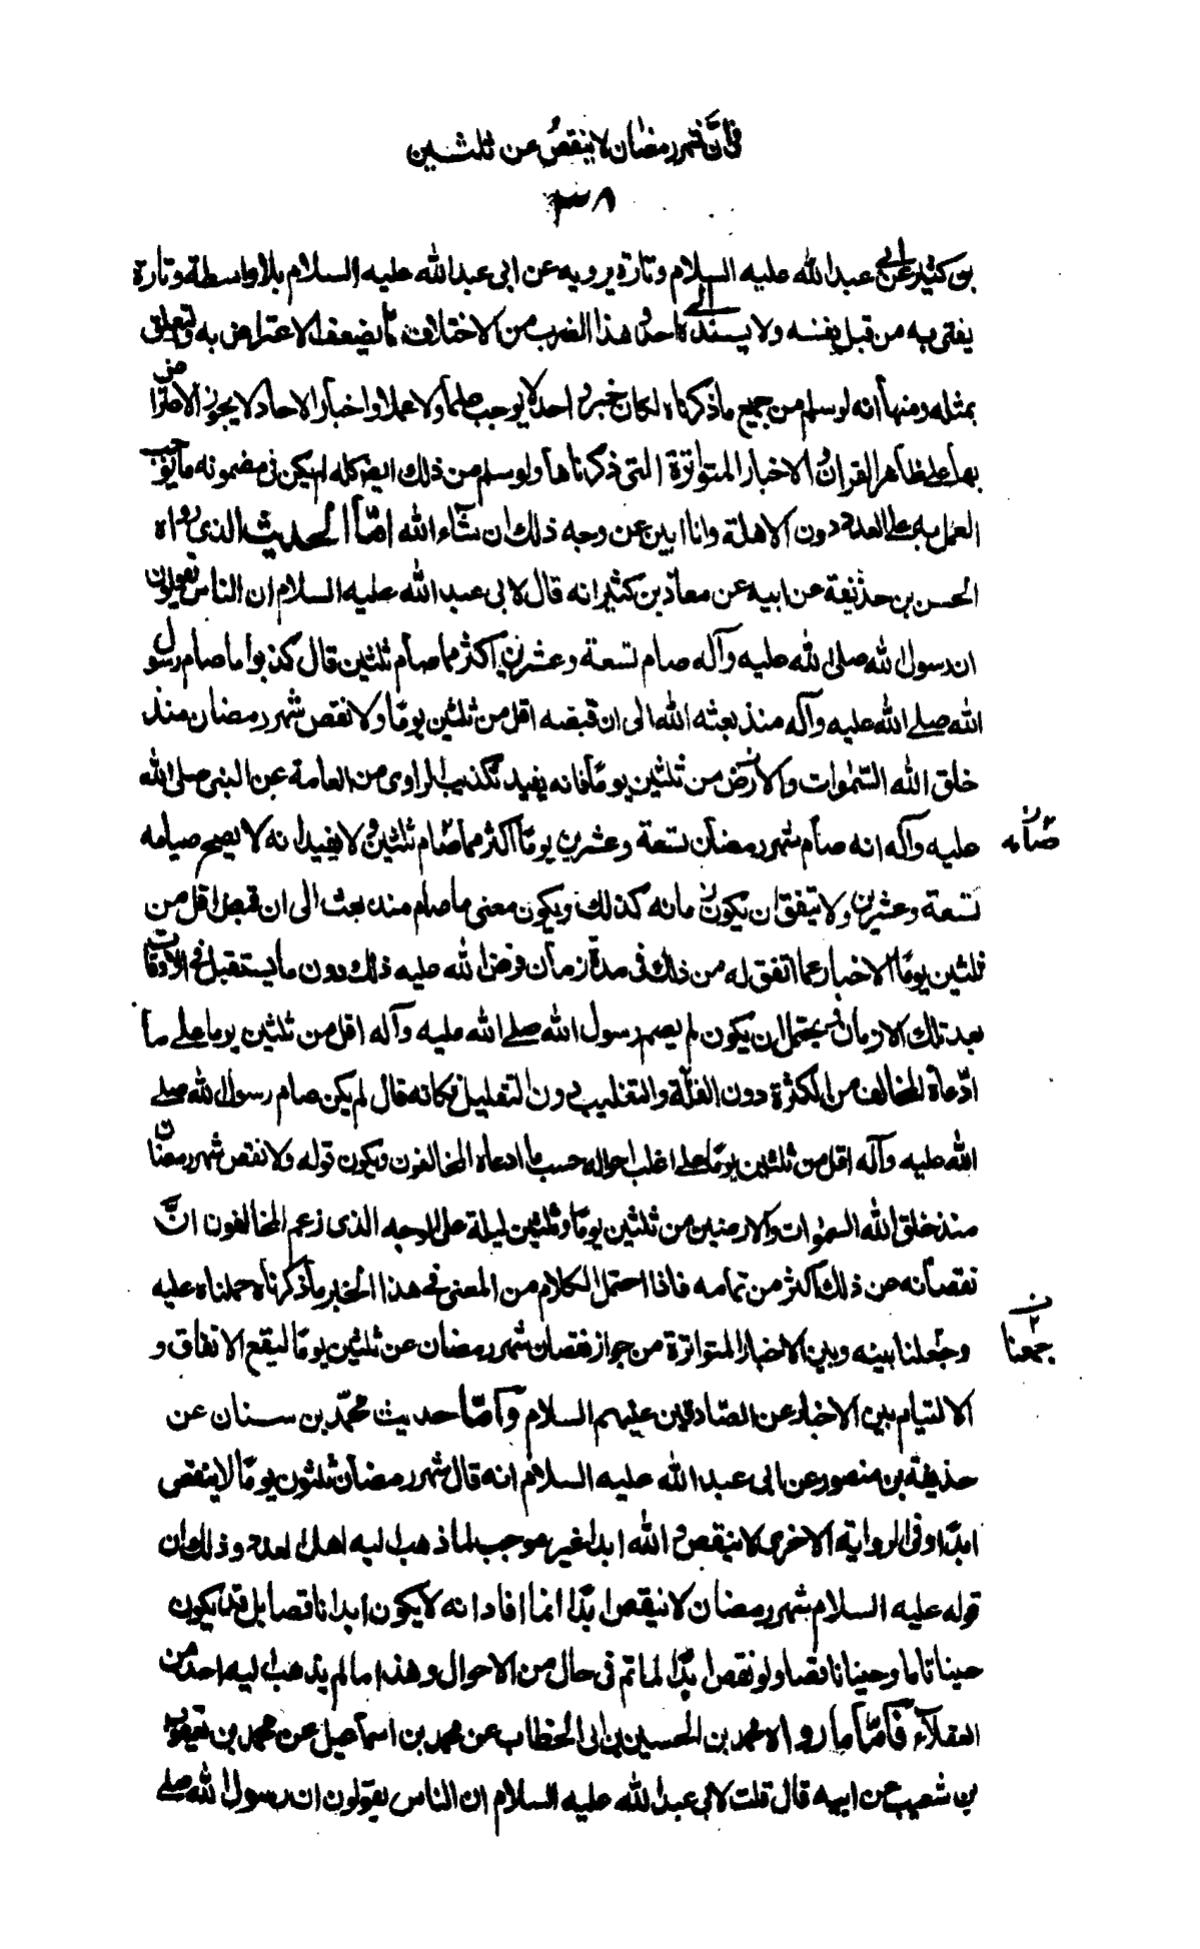 في أنّ شهر رمضان لا ينقص عن ثلثين
٣٨
بن كثير عن ابى عبد الله عليه السلام وتارة يرويه عن ابى عبد الله عليه السلام بلا واسطة وتارة
يفتى به من قبل نفسه ولا يسنده الى احد وهذا الضرب من الاختلاف مما يضعف الاعتراض به والتعلق
بمثله ومنها أنه لو سلم من جميع ما ذكرناه لكان خبرا واحدا لا يوجب علما ولا عملا واخبار الاحاد لا يجوز الاعتراض
بها على ظاهر القران والاخبار المتواترة التى ذكرناها ولو سلم من ذلك ايضا كله لم يكن فى مضمونه ما يوجب
العمل به على العدد دون الاهلة وانا ابين عن وجه ذلك ان شآء الله امّا الحديث الذى رواه
الحسن بن حذيفة عن ابيه عن معاذ بن كثير انه قال لابى عبد الله عليه السلام ان الناس يقولون
ان رسول الله صلى الله عليه وآله صام تسعة وعشرين اكثر مما صام ثلثين قال كذبوا ما صام رسول
الله صلى الله عليه وآله منذ بعثه الله الى ان قبضه اقل من ثلثين يومًا ولا نقص شهر رمضان منذ
خلق الله السّمٰوات والارض من ثلثين يومًا فانه يفيد تكذيب الراوى من العامة عن النبى صلى الله
عليه وآله انه صام شهر رمضان تسعة وعشرين يومًا اكثر مما صام ثلثين ولا يفيد انه لا يصح صيامه
صيامه ن
تسعة وعشرين ولا يتفق ان يكون زمانه كذلك ويكون معنى ما صام منذ بعث الى ان قبض اقل من
ثلثين يومًا الاخبار عما اتفق له من ذلك فى مدة زمان فرض الله عليه ذلك دون ما يستقبل فى الاوقات
بعد تلك الازمان ويحتمل ان يكون لم يصم رسول الله صلى الله عليه وآله اقل من ثلثين يوما على ما
ادّعاه المخالف من الكثرة دون القلّة والتغليب دون التقليل فكانه قال لم يكن صام رسول الله صلى
الله عليه وآله اقل من ثلثين يومًا على اغلب احواله حسب ما ادعاه المخالفون ويكون قوله ولا نقص شهر رمضان
منذ خلق الله السمٰوات والارضين من ثلثين يومًا وثلثين ليلة على الوجه الذى زعم المخالفون انّ
نقصانه عن ذلك اكثر من تمامه فاذا احتمل الكلام من المعنى فى هذا الخبر ما ذكرناه حملناه عليه
وجعلنا بينه وبين الاخبار المتواترة من جواز نقصان شهر رمضان عن ثلثين يومًا ليقع الاتفاق و
جمعنا ن ٢
الالتيام بين الاخبار عن الصّادقين عليهم السلام وأمّا حديث محمّد بن سنان عن
حذيفة بن منصور عن ابى عبد الله عليه السلام انه قال شهر رمضان ثلثون يومًا لا ينقص
ابدًا وفى الرواية الاخرى لا ينقص والله ابدا غير موجب لما ذهب اليه اهل العدد وذلك ان
قوله عليه السلام شهر رمضان لا ينقص ابدًا انما افاد انه لا يكون ابدا ناقصا بل قد يكون
حينا تاما وحينا ناقصا ولو نقص ابدًا لما تم فى حال من الاحوال وهذا ما لم يذهب اليه احد من
العقلآء فأمّا ما رواه محمد بن الحسين بن ابى الخطاب عن محمد بن اسماعيل عن محمد بن يعقوب
بن شعيب عن ابيه قال قلت لابى عبد الله عليه السلام ان الناس يقولون ان رسول الله صلى